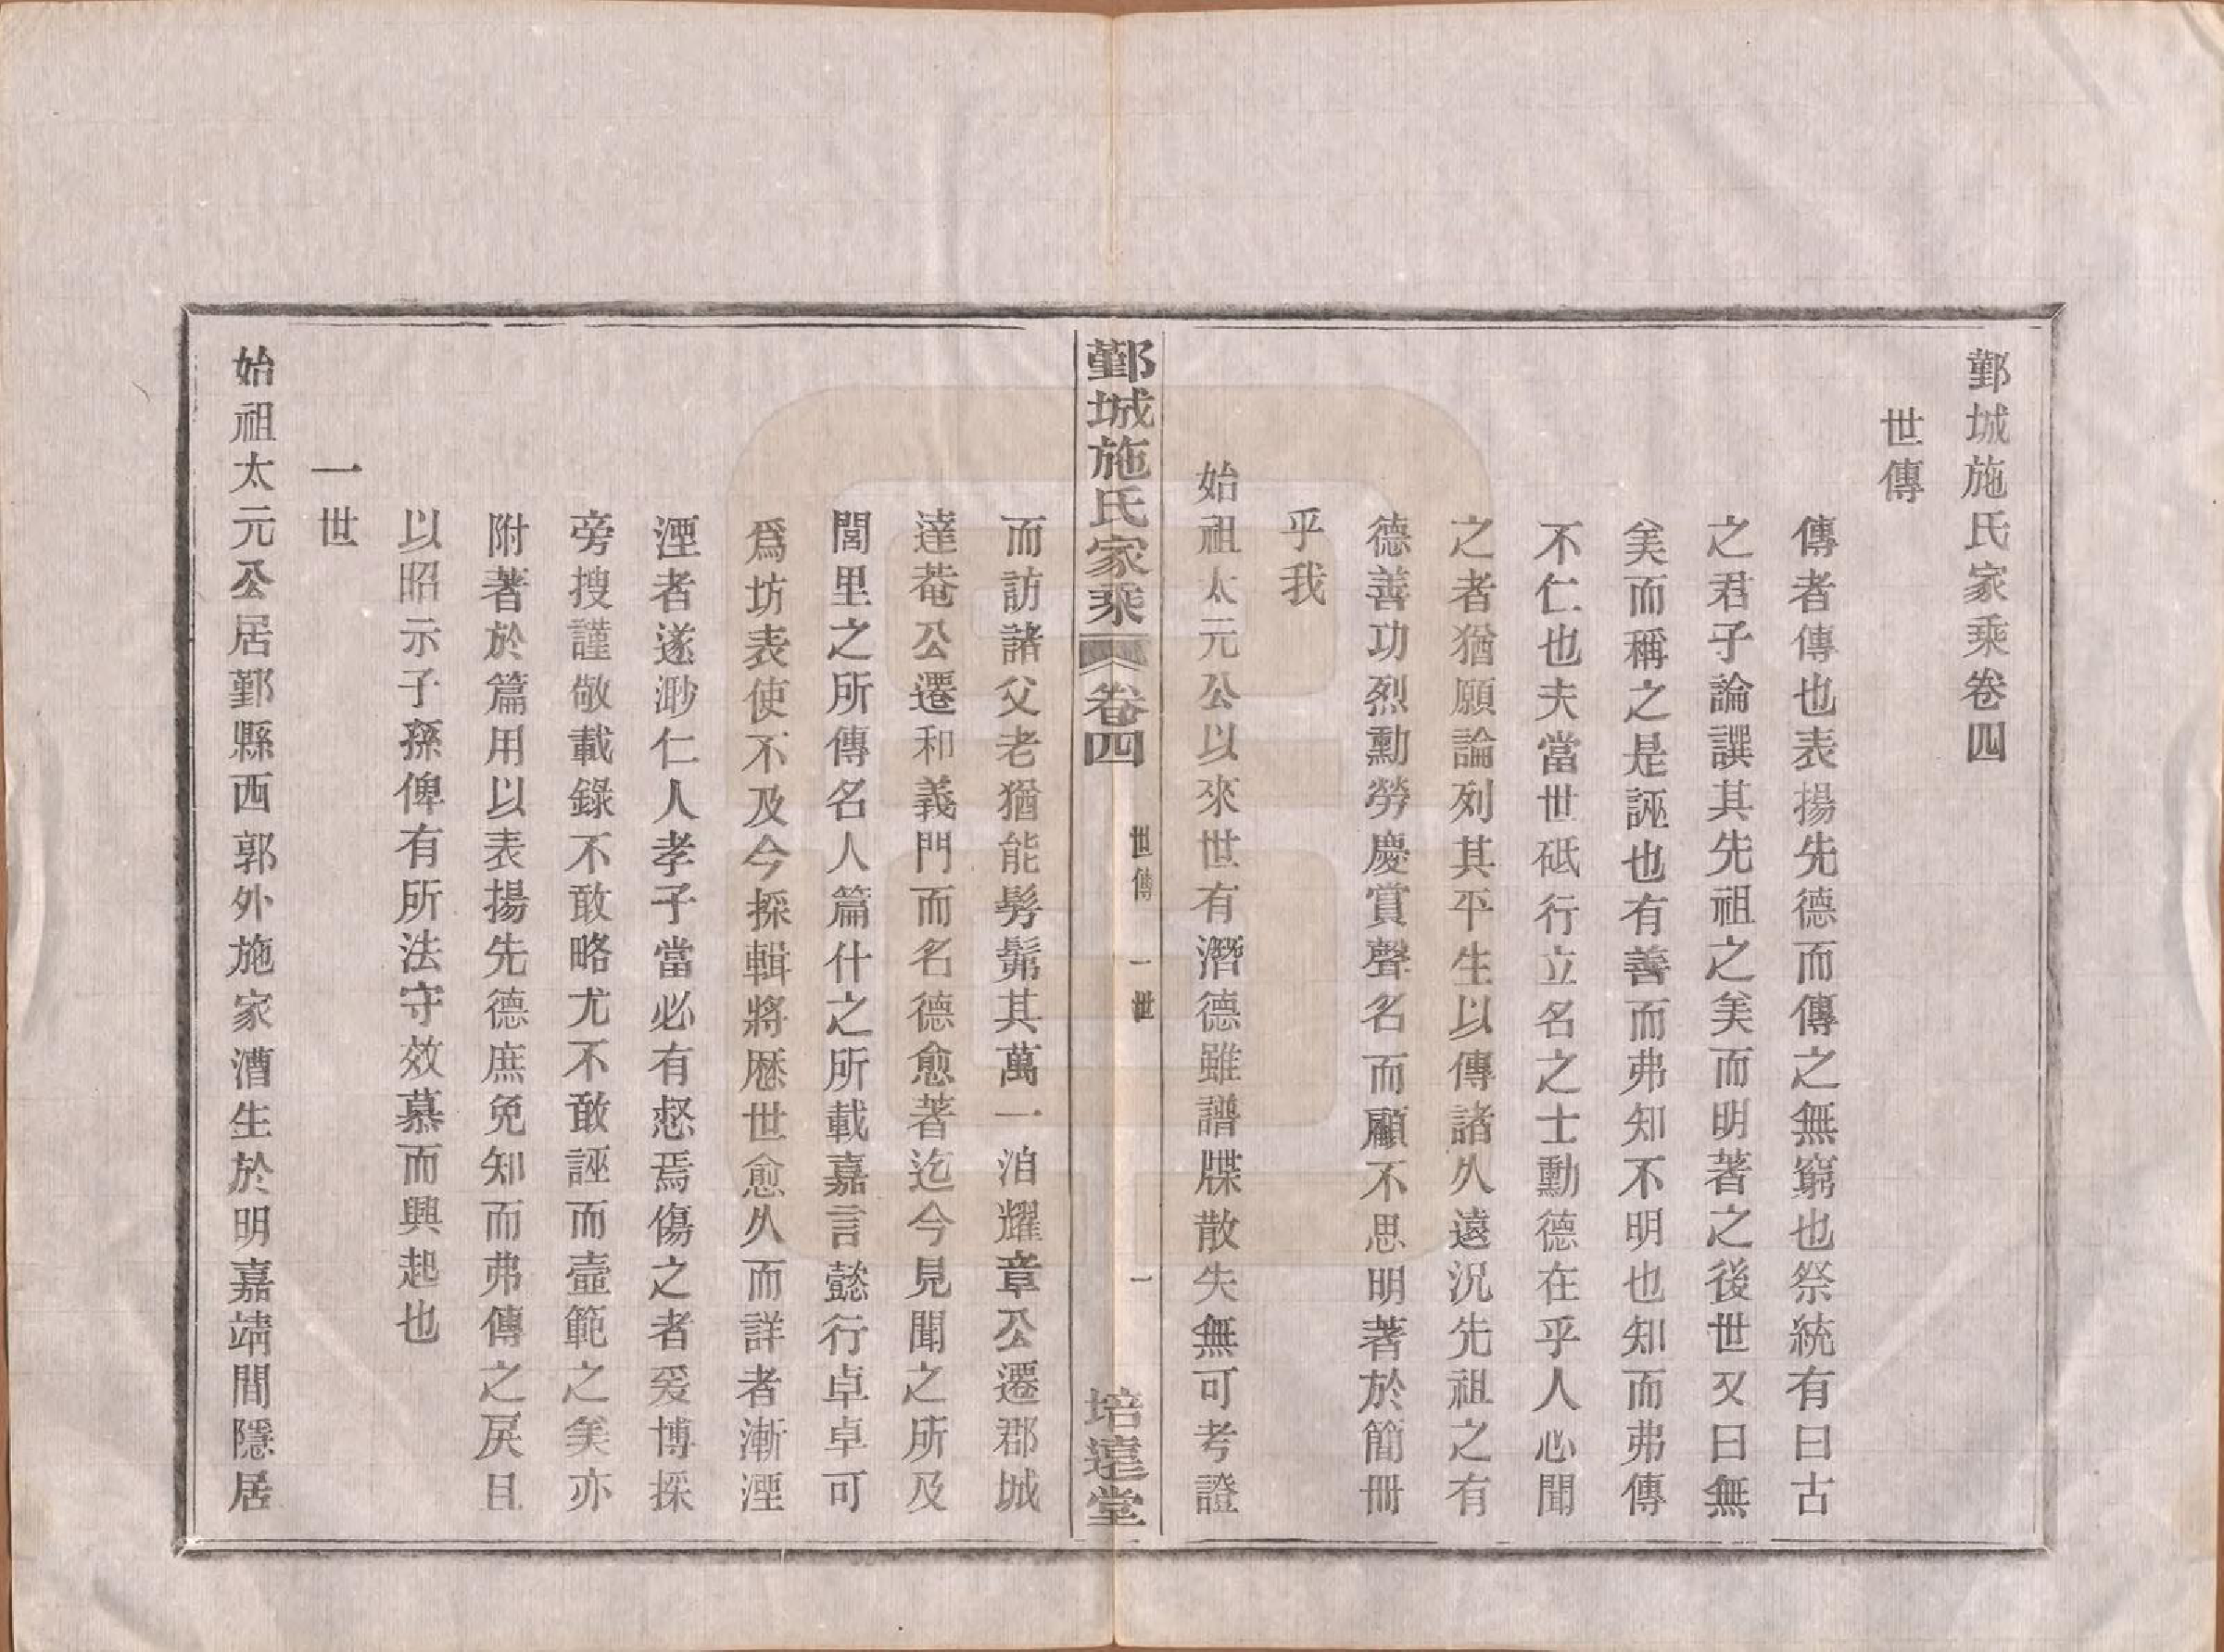 鄞城施氏家乘卷四
世傳
傳者傳也表揚先德而傳之無窮也祭統有曰古
之君子論譔其先祖之美而明著之後世又曰無
美而稱之是誣也有善而弗知不明也知而弗傳
不仁也夫當世砥行立名之士勳德在乎人心聞
之者猶願論列其平生以傳諸久遠況先祖之有
德善功烈勳勞慶賞聲名而顧不思明著於簡冊
乎我
始祖太元公以來世有潛德雖譜牒散失無可考證
鄞城施氏家乘 卷四 世傳 一世 一 培遠堂
而訪諸父老猶能髣髴其萬一洎耀章公遷郡城
達菴公遷和義門而名德愈著迄今見聞之所及
閭里之所傳名人篇什之所載嘉言懿行卓卓可
爲坊表使不及今採輯將歷世愈久而詳者漸湮
湮者遂渺仁人孝子當必有惄焉傷之者爰博採
旁搜謹敬載錄不敢略尤不敢誣而壼範之美亦
附著於篇用以表揚先德庶免知而弗傳之戾且
以昭示子孫俾有所法守效慕而興起也
一世
始祖太元公居鄞縣西郭外施家漕生於明嘉靖間隱居